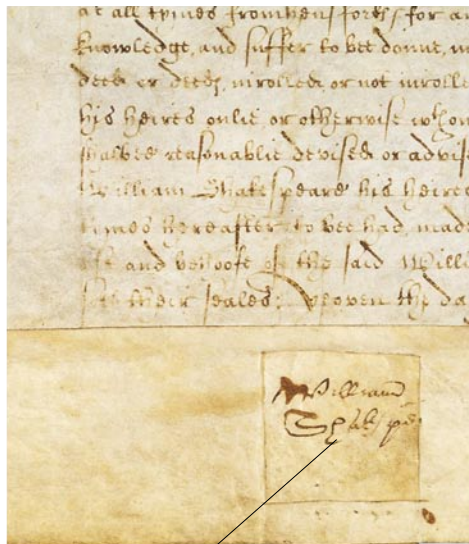 at all tymes from hensforth for a
knowledge, and suffer to bee donne, m
deede or deedes, inrolled or not inrolle
his heires onlie, or otherwise
shalbee reasonablie devised or advise
William Shakespeare his heires
tymes hereafter to bee had, made
use and behoofe of the said Willi
sett their seales: Yeoven the da
William
Shakspē